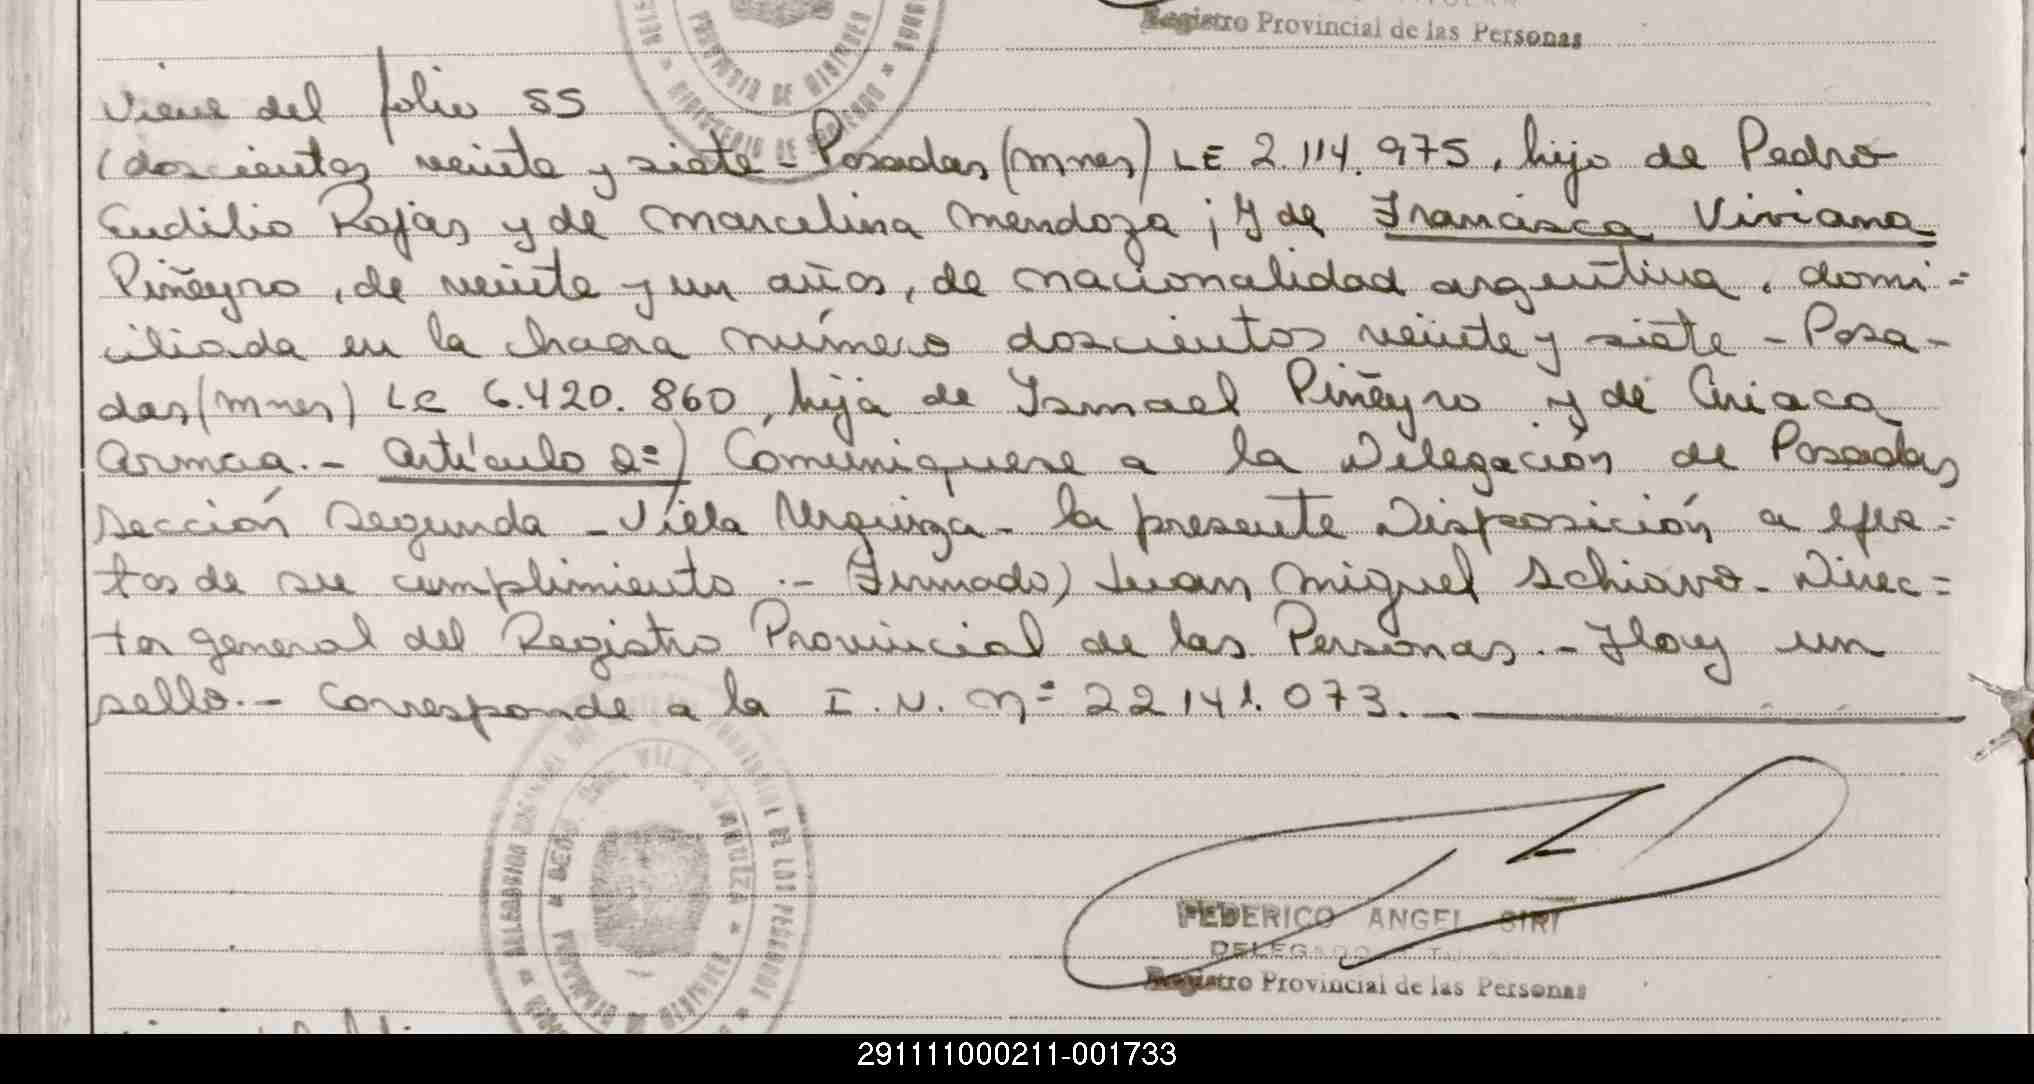 Registro Provincial de las Personas
Viene del folio 55
(doscientos veinte y siete - Posadas (mnes) LE 2.114.975, hijo de Pedro
Eudilio Rojas y de Marcelina Mendoza; Y de Francisca Viviana
Piñeyro, de veinte y un años, de nacionalidad argentina, domi=
ciliada en la chacra número doscientos veinte y siete - Posa-
das (mnes) LC 6.420.860, hija de Ismael Piñeyro y de Ciriaca
Armoa.- Artículo 2º) Comuniquese a la Delegación de Posadas
Sección Segunda - Villa Urquiza - la presente Disposición a efec=
tos de su cumplimiento.- (Firmado) Juan Miguel Schiavo - Direc=
tor general del Registro Provincial de las Personas.- Hay un
sello.- Corresponde a la I.N. nº 22.141.073.-
FEDERICO ANGEL SIRI
DELEGADO
Registro Provincial de las Personas
291111000211-001733